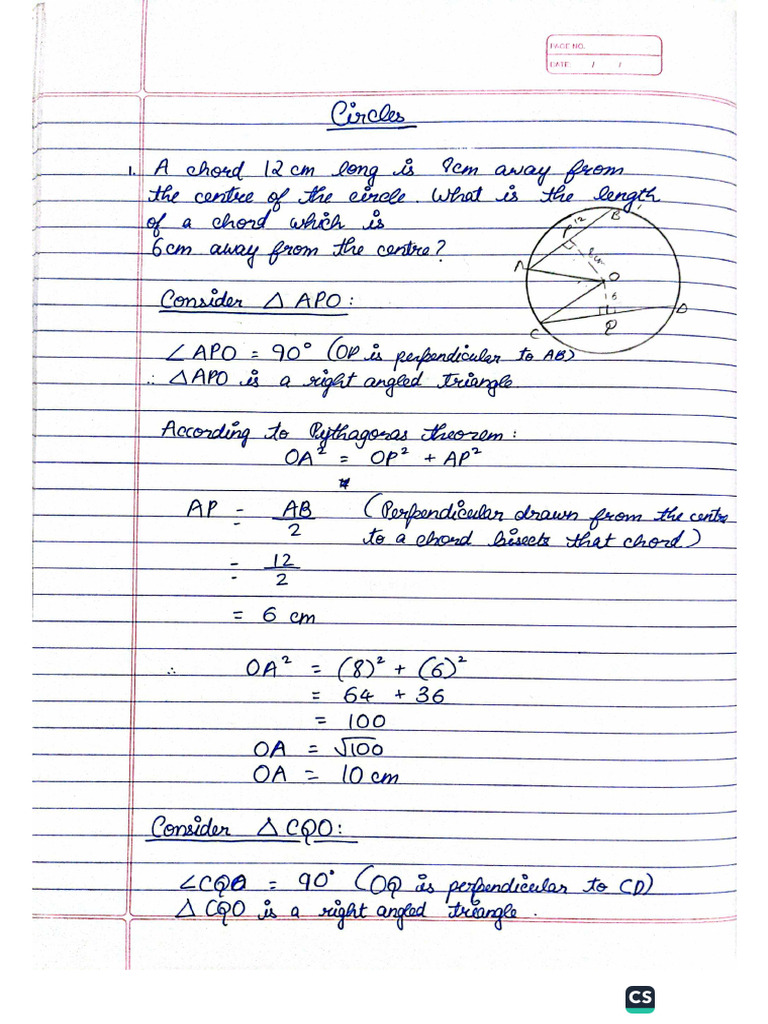 PAGE NO.
DATE: / /
Circles
1. A chord 12 cm long is 8cm away from
the centre of the circle. What is the length
of a chord which is
6cm away from the centre?
12
P
B
8cm
A
O
6
D
C
Q
Consider △ APO:
∠APO = 90° (OP is perpendicular to AB)
∴ △APO is a right angled triangle
According to Pythagoras theorem:
OA² = OP² + AP²
AP = AB/2 (Perpendicular drawn from the centre
to a chord bisects that chord)
= 12/2
= 6 cm
∴ OA² = (8)² + (6)²
= 64 + 36
= 100
OA = √100
OA = 10 cm
Consider △CQO:
∠CQO = 90° (OQ is perpendicular to CD)
△ CQO is a right angled triangle.
CS